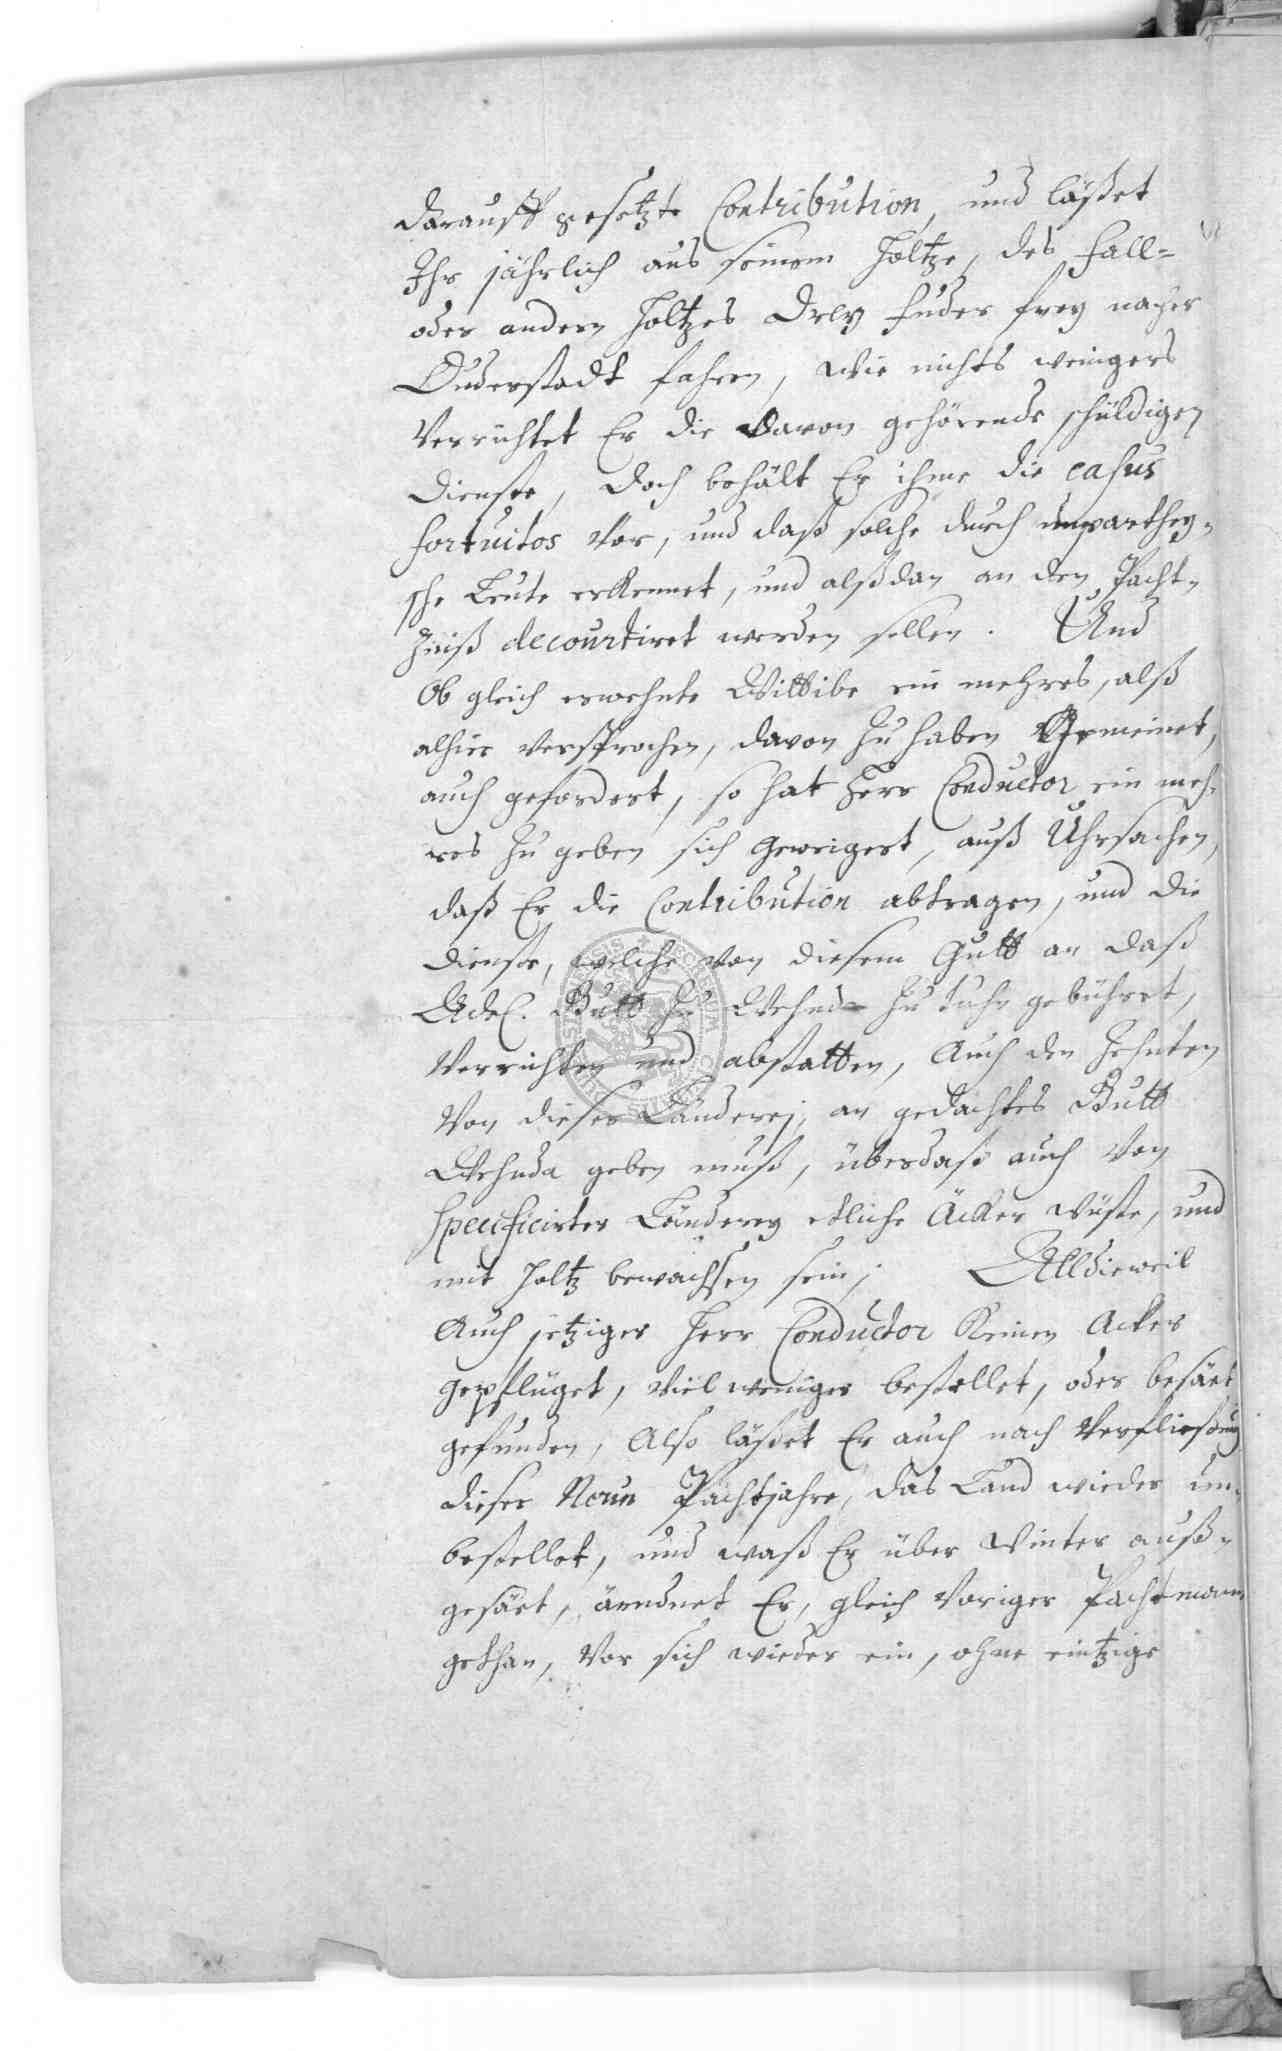 darauff gesetzte Contribution, und läßet
Ihr jährlich aus seinem Holtze, des Fall-
oder andern Holtzes Drey Fuder frey nacher
Duderstadt fahren, Wie nichts weinigers
Verrichtet Er die davon gehörende schuldigen
Dienste, Doch behält Er ihme die casus
fortuitos vor, und daß solche durch unparthey-
sche Leute erkennet, und alßdan an den Pacht-
Zinß decourtiret werden sollen. Und
Ob gleich erwehnte Wittibe ein mehres, alß
alhier versprochen, davon zu haben Vermeinet,
auch gefordert, so hat Herr Conductor ein meh-
res zu geben sich geweigert, auß Uhrsachen,
daß Er die Contribution abtragen, und die
Dienste, welche von diesem Gutt an daß
Adel. Gutt zu Wehnde zu tuhn gebühret,
Verrichten und abstatten, Auch den Zehnten
Von dieser Länderej, an gedachtes Gutt
Wehnda geben muß, überdaß auch von
specificirter Länderey etliche Äcker wüste, und
mit Holtz bewachsen sein; Alldieweil
Auch jetziger Herr Conductor Keinen Acker
gepflüget, viel weniger bestellet, oder besäet
gefunden, Also läßet Er auch nach Verfließung
dieser Neun Pachtjahre, das Land wieder un-
bestellet, und waß Er über Winter auß-
gesäet, ärndnet Er, gleich voriger Pachtmann
gethan, vor sich wieder ein, ohne eintzige